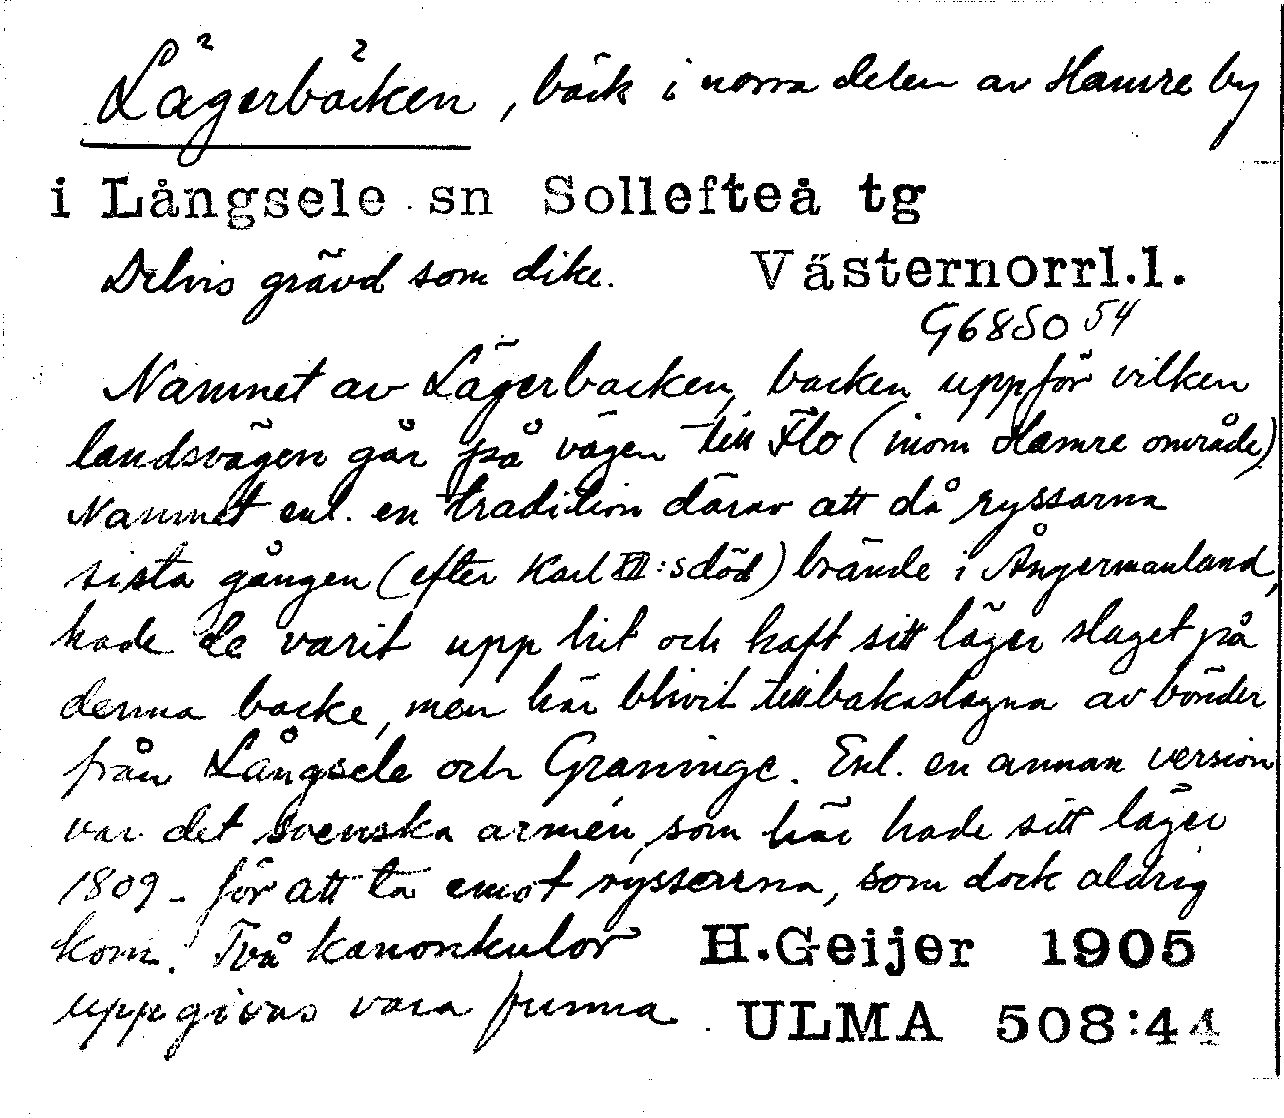 Lägerbäcken, bäck i norra delen av Hamre by
i Långsele sn Sollefteå tg
Delvis grävd som dike. Västernorrl.l.
G6850 54
Namnet av Lägerbacken, backen uppför vilken
landsvägen går på vägen till Flo (inom Hamre område)
Namnet enl. en tradition därav att då ryssarna
sista gången (efter Karl XII:s död) brände i Ångermanland,
hade de varit upp hit och haft sitt läger slaget på
denna backe, men här blivit tillbakaslagna av bönder
från Långsele och Graninge. Enl. en annan version
var det svenska armén, som här hade sitt läger
1809 - för att ta emot ryssarna, som dock aldrig
kom. Två kanonkulor H.Geijer 1905
uppgivas vara funna. ULMA 508:44